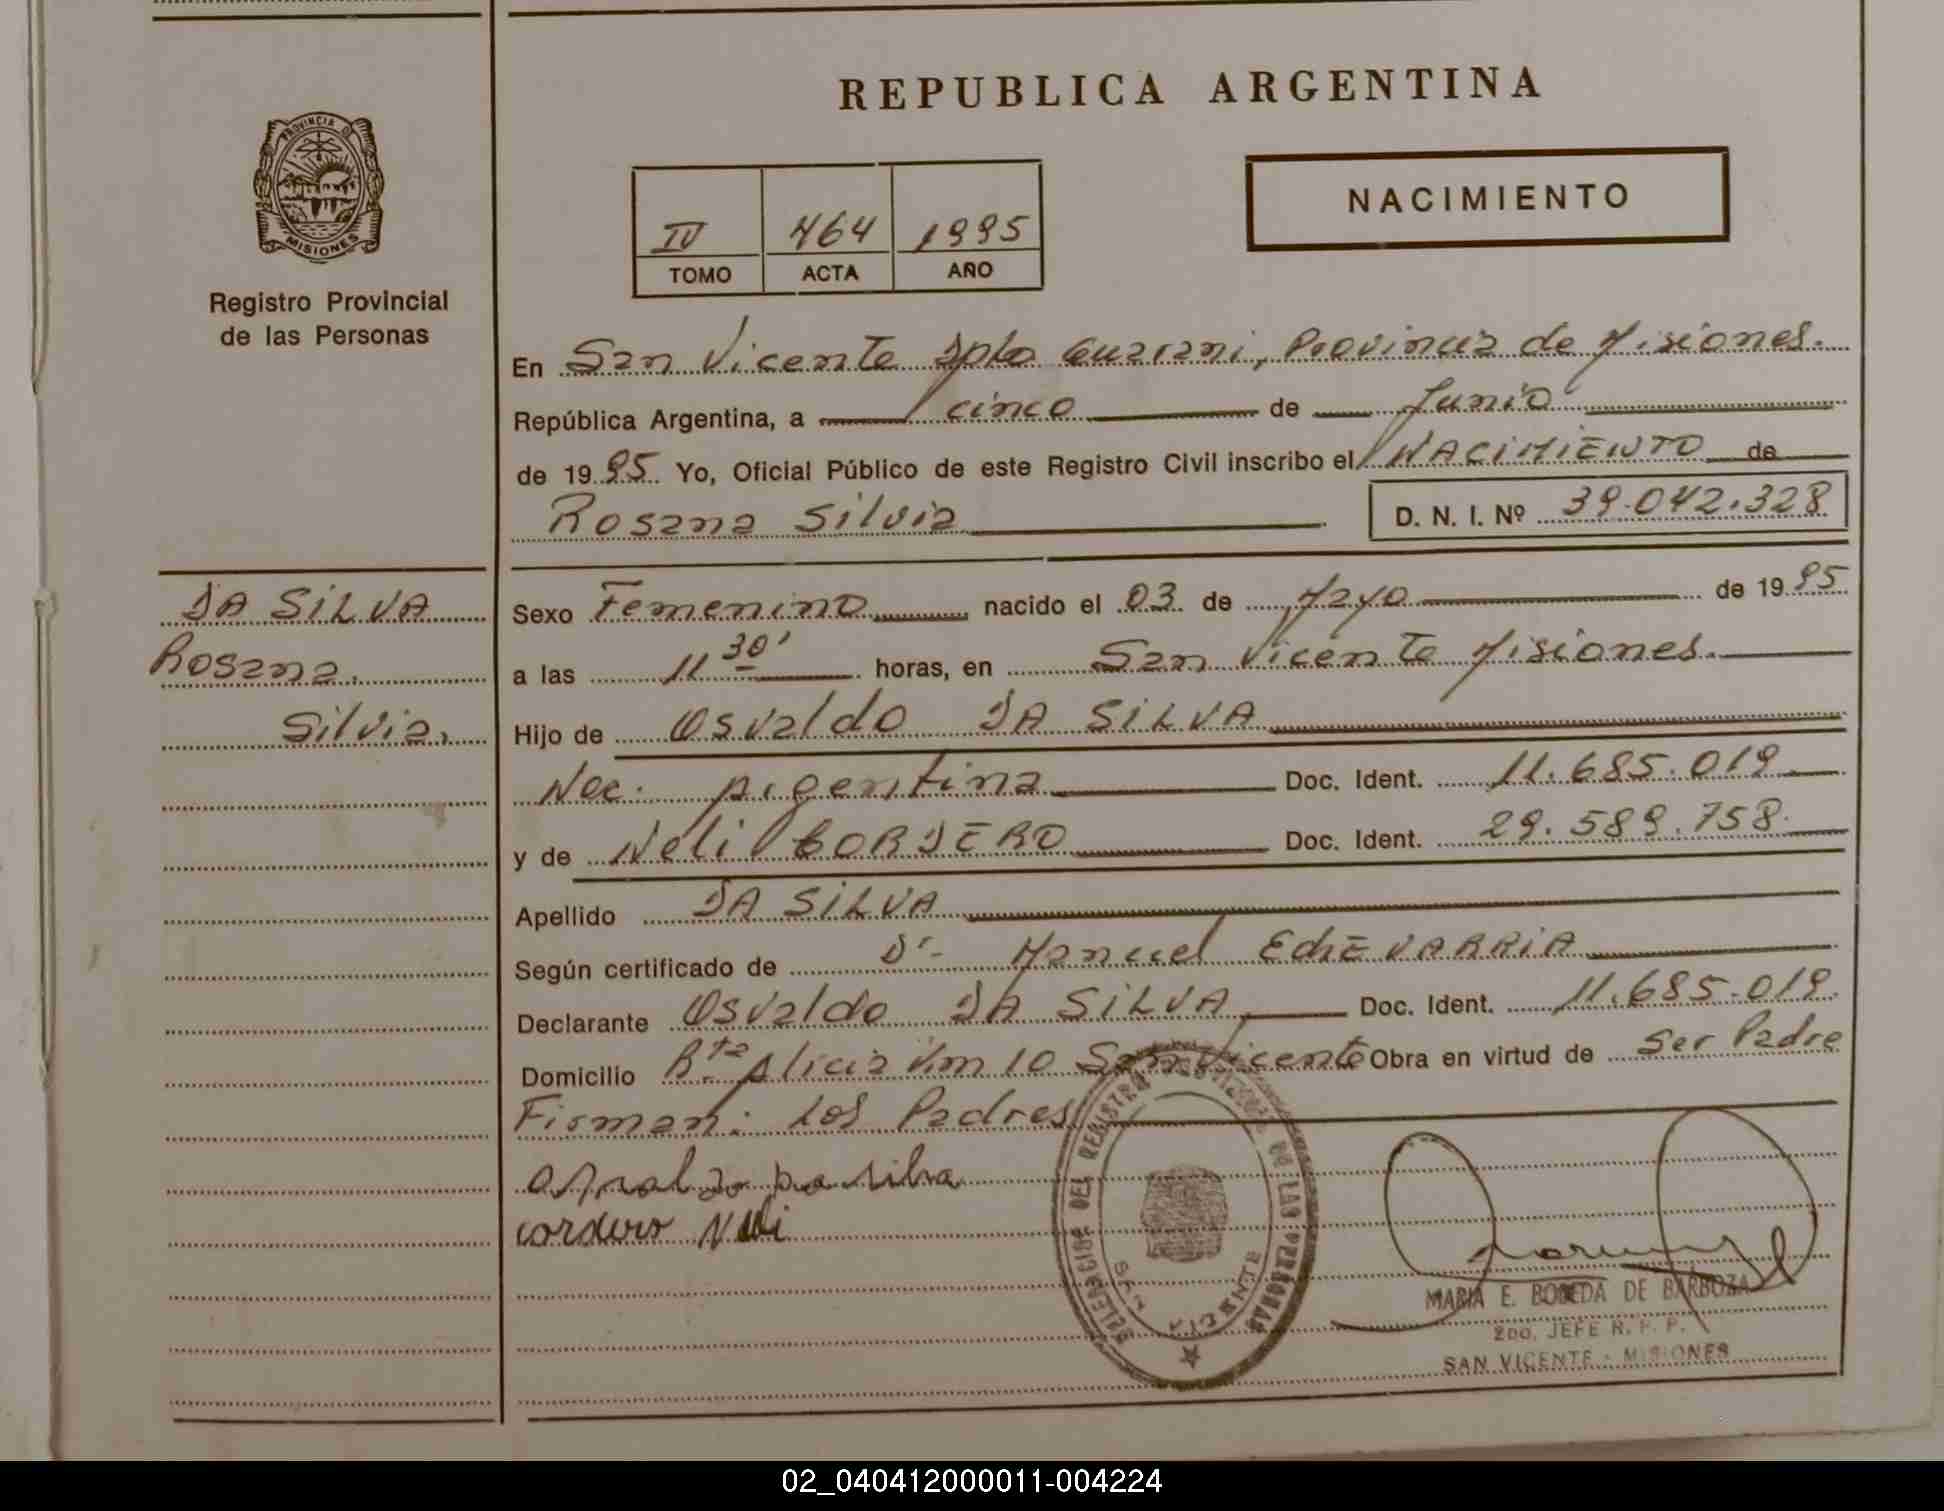 REPUBLICA ARGENTINA
PROVINCIA DE
MISIONES
Registro Provincial
de las Personas
NACIMIENTO
IV 464 1995
TOMO ACTA AÑO
En San Vicente Dpto Guarani, Provincia de Misiones.
República Argentina, a cinco de Junio
de 1995. Yo, Oficial Público de este Registro Civil inscribo el NACIMIENTO de
Rosana Silvia D. N. I. Nº 39.042.328
DA SILVA
Rosana
Silvia.
Sexo Femenino nacido el 03 de Mayo de 1995
a las 11 30' horas, en San Vicente Misiones.
Hijo de Osvaldo DA SILVA
Nac. Argentina Doc. Ident. 11.685.019
y de Neli CORDERO Doc. Ident. 29.589.758
Apellido DA SILVA
Según certificado de Dr. Manuel EchEVARRIA
Declarante Osvaldo DA SILVA Doc. Ident. 11.685.019
Domicilio Rta Alicia Km 10 San Vicente Obra en virtud de Ser Padre
Firman: Los Padres
Osvaldo Da silva
cordero Neli
DEL REGISTRO PROVINCIAL DE LAS PERSONAS
SAN VICENTE
MARIA E. BOBEDA DE BARBOZA
2DO. JEFE R. P. P.
SAN VICENTE - MISIONES
02_040412000011-004224